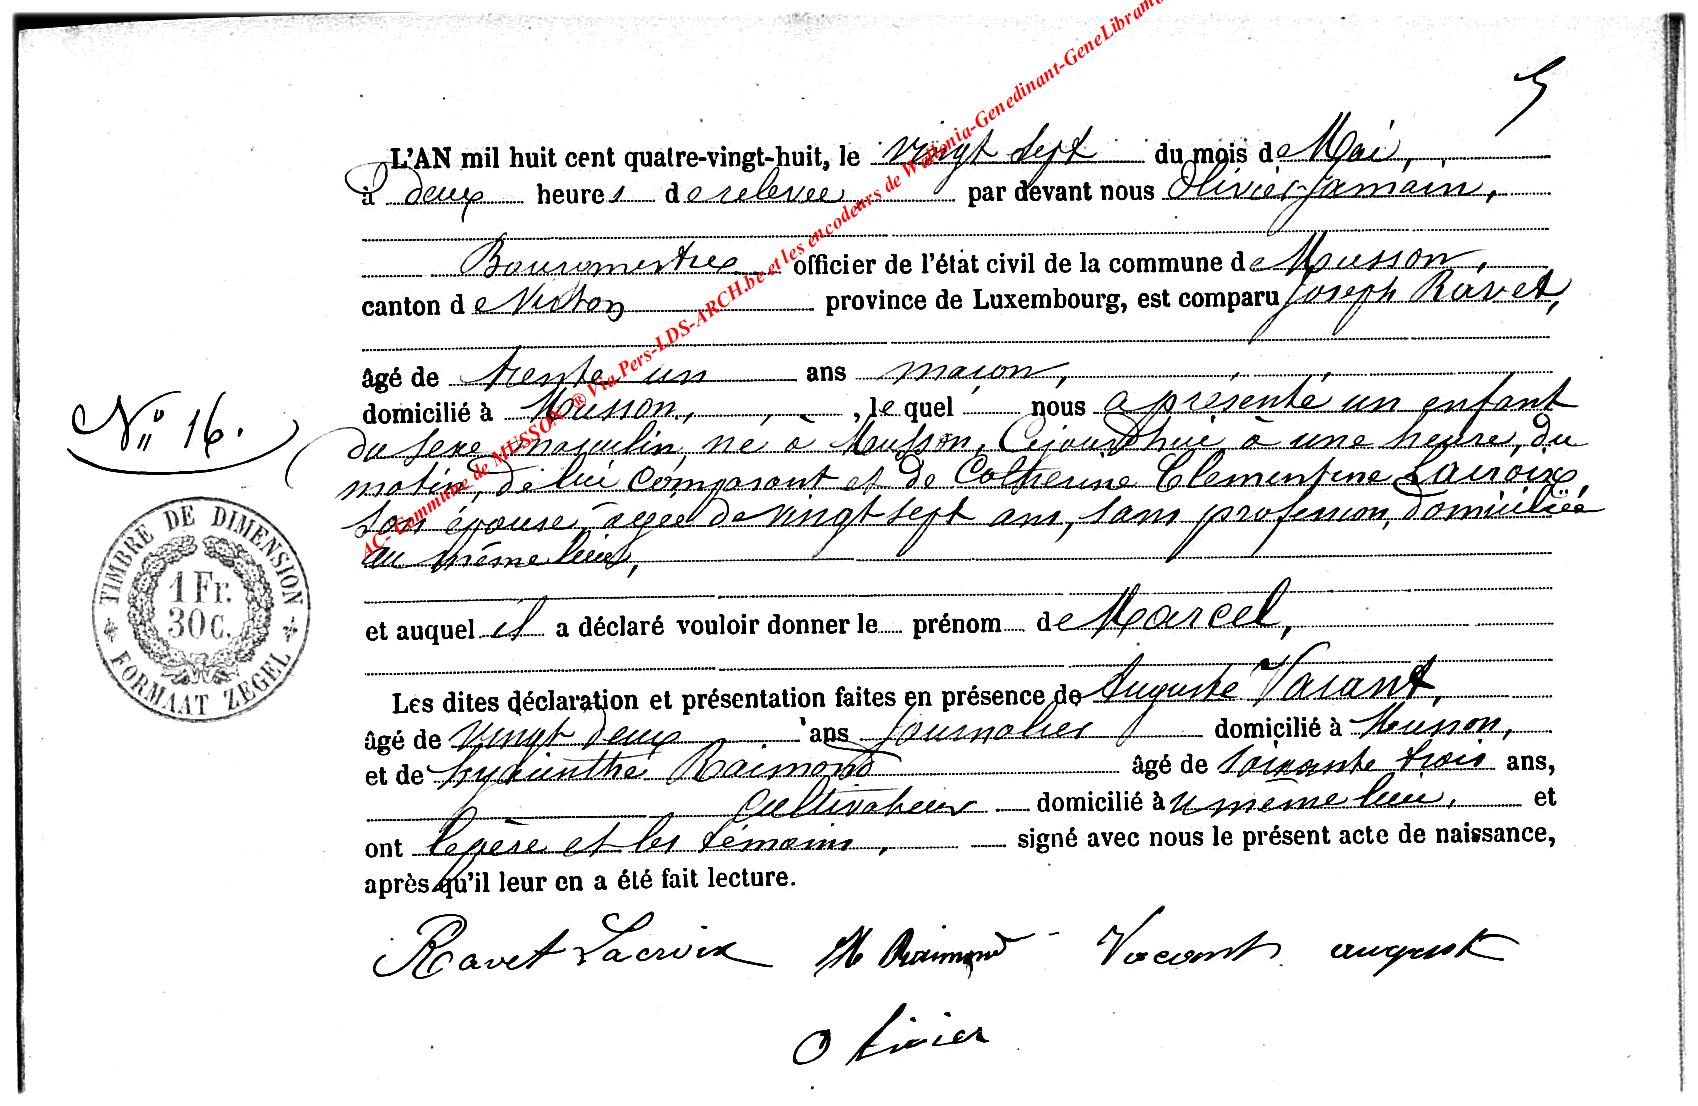 5
L'AN mil huit cent quatre-vingt-huit, le vingt sept du mois de Mai,
à deux heures de relevée par devant nous Olivier Jamain,
Bourgmestre officier de l'état civil de la commune de Musson,
canton de Virton province de Luxembourg, est comparu Joseph Ravet,
âgé de trente un ans maçon,
N° 16.
domicilié à Musson, , le quel nous a présenté un enfant
du sexe masculin, né à Musson, Cejourd'hui à une heure, du
matin, de lui comparant et de Catherine Clementine Lacroix,
son épouse, agée de vingt sept ans, sans profession, domiciliée
au même lieu,
TIMBRE DE DIMENSION
1 Fr.
30 C.
FORMAAT ZEGEL
et auquel il a déclaré vouloir donner le prénom de Marcel,
Les dites déclaration et présentation faites en présence de Auguste Vacant,
âgé de vingt deux ans journalier domicilié à Musson,
et de hyacinthe Raimond âgé de soixante trois ans,
cultivateur domicilié à u même lieu, et
ont le père et les témoins, signé avec nous le présent acte de naissance,
après qu'il leur en a été fait lecture.
Ravet Lacroix H Raimond Vacant august
Olivier
AC- Commune de MUSSON ® Via Pers-LDS-ARCH.be et les encodeurs de Wallonia-Genedinant-GeneLibramo